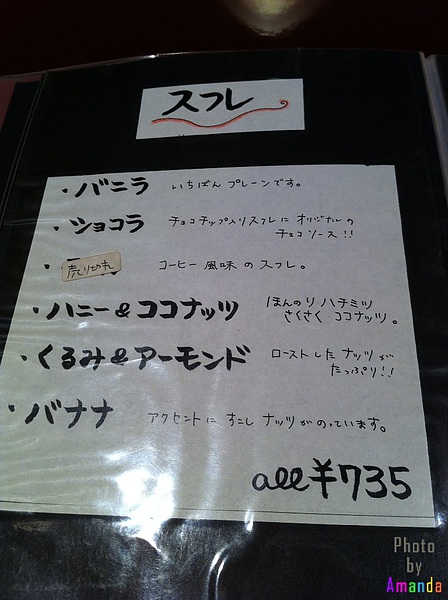 スフレ
・バニラ いちばん プレーンです。
・ショコラ チョコチップ入りスフレに オリジナルの
チョコソース!!
・売り切れ コーヒー風味のスフレ。
・ハニー&ココナッツ ほんのり ハチミツ
さくさく ココナッツ。
・くるみ&アーモンド ローストした ナッツが
たっぷり!!
・バナナ アクセントに すこし ナッツがのっています。
all ¥735
Photo
by
Amanda